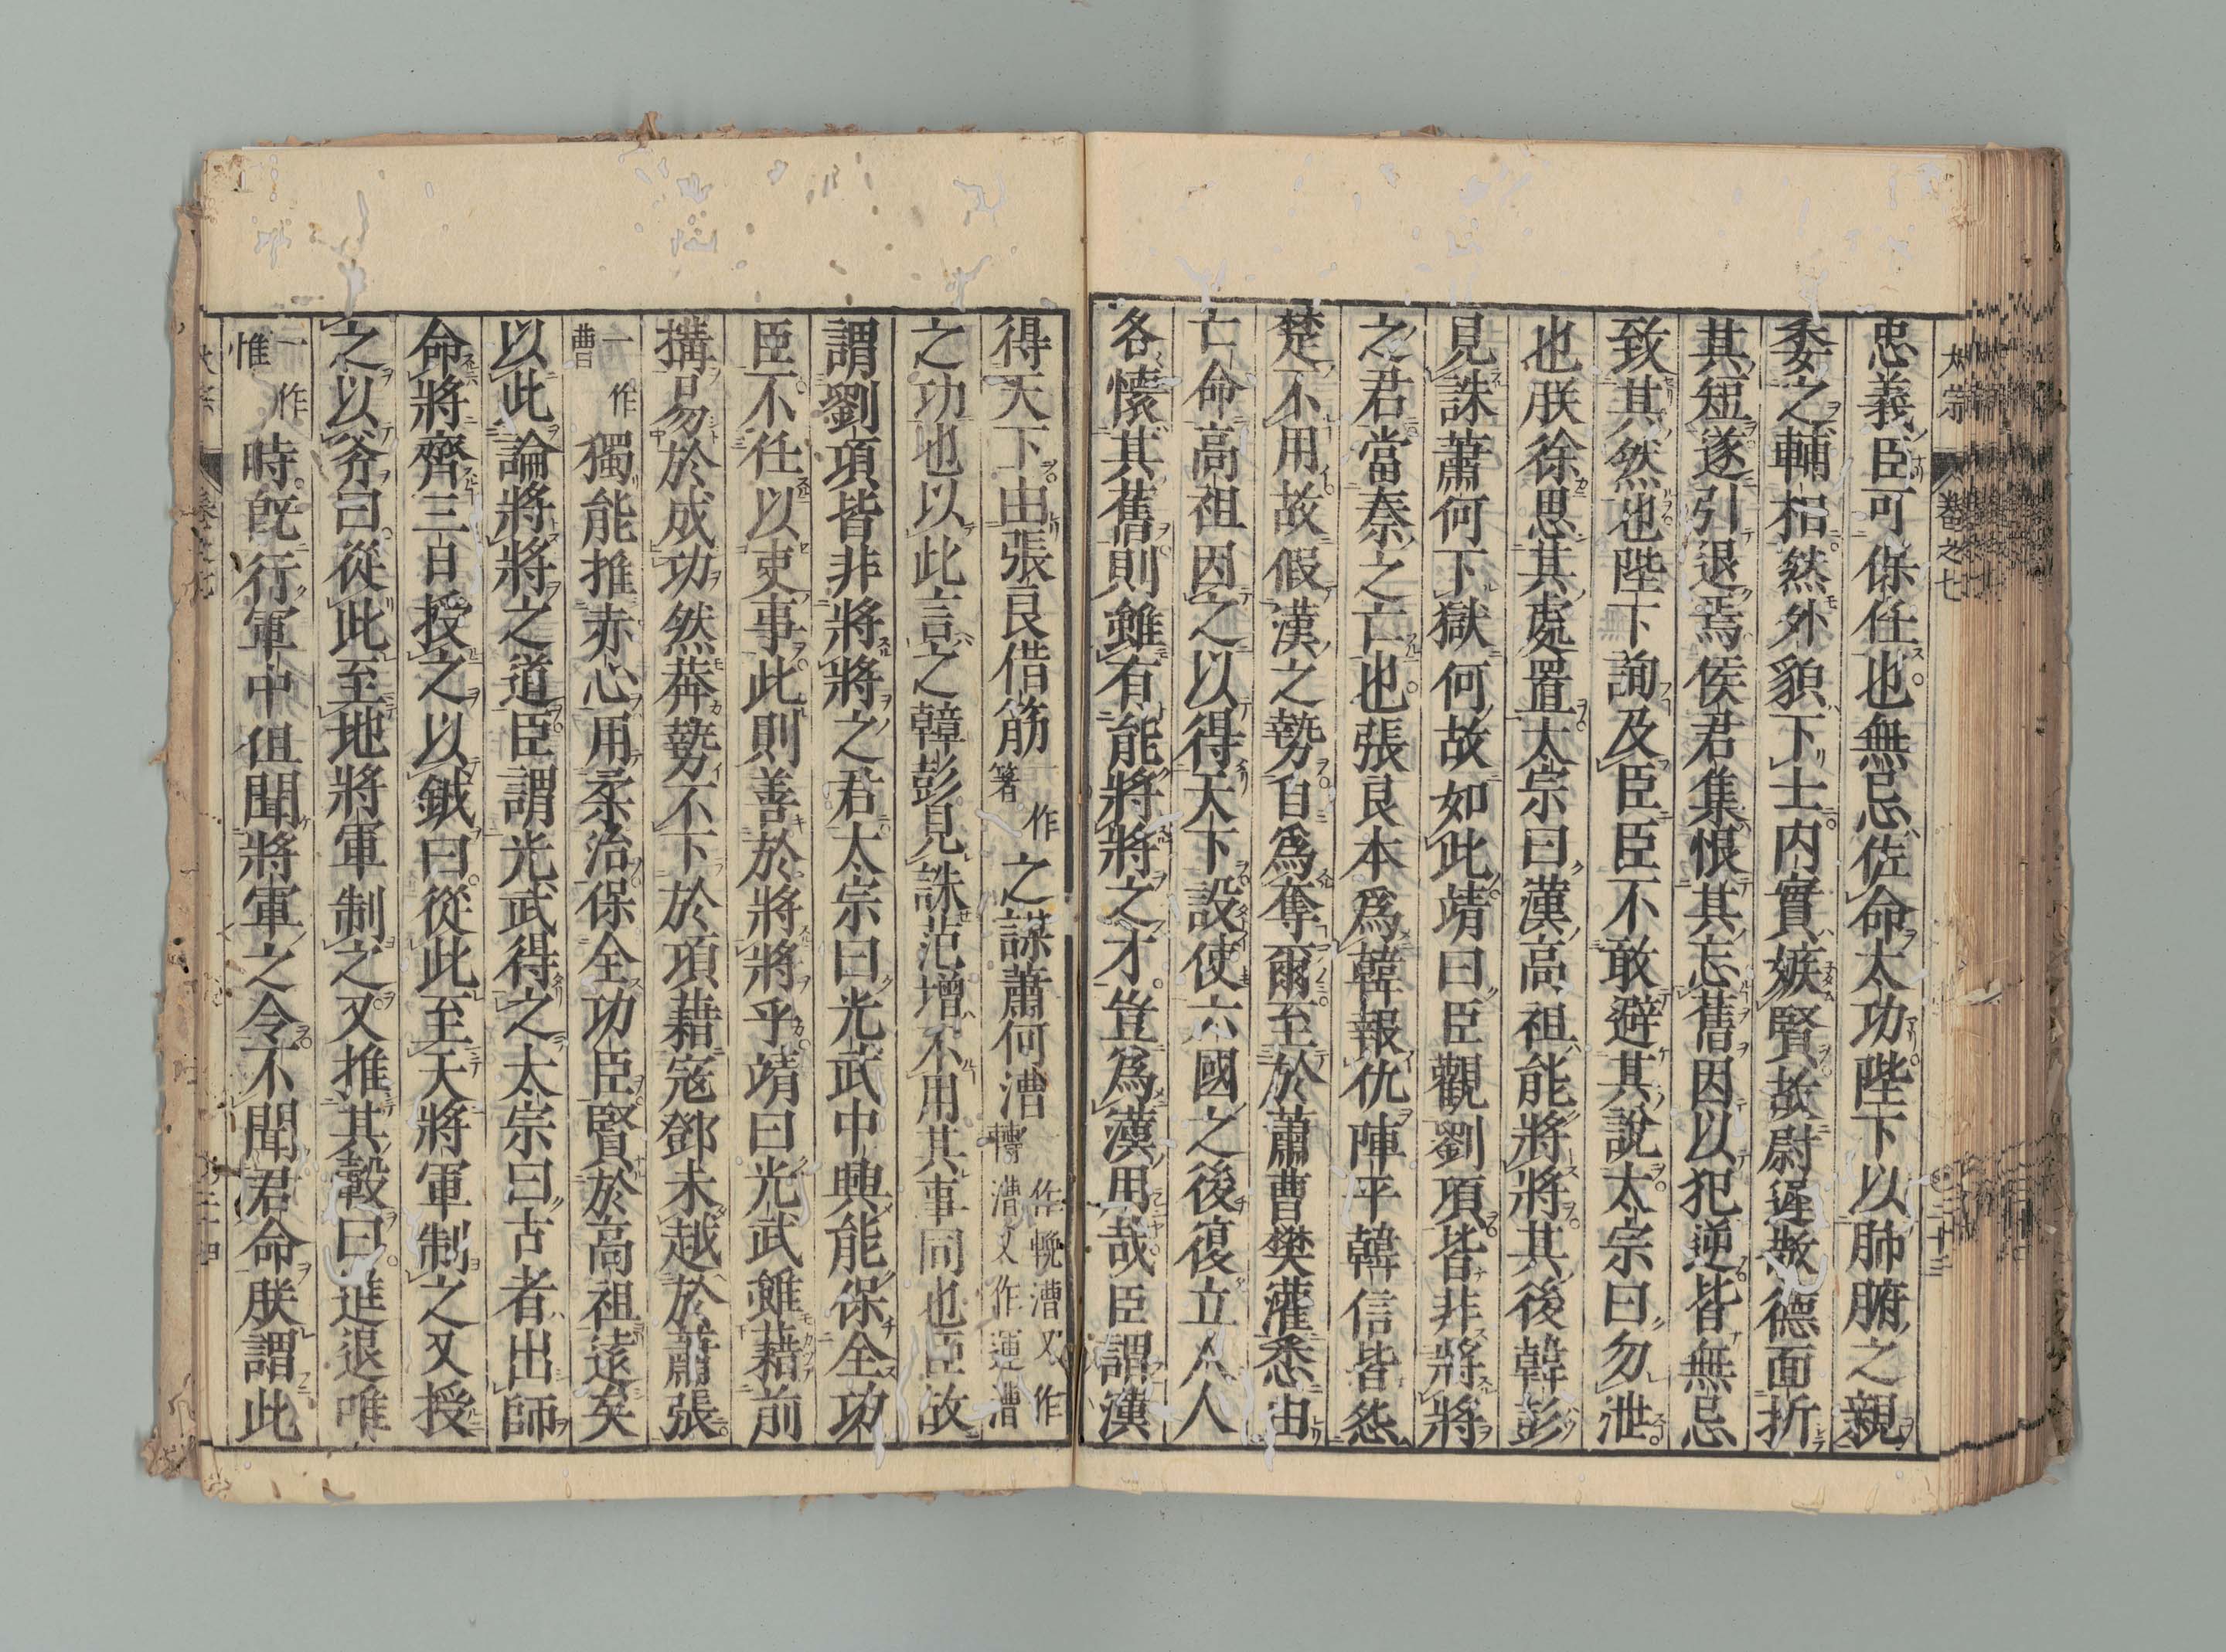 太宗 卷之七 三十三
忠義臣可保任也無忌佐命太功陛下以肺腑之親
委之輔相然外貌下士内實嫉賢故尉遲敬德面折
其短遂引退焉侯君集恨其忘舊因以犯逆皆無忌
致其然也陛下詢及臣臣不敢避其說太宗曰勿泄
也朕徐思其處置太宗曰漢高祖能將將其後韓彭
見誅蕭何下獄何故如此靖曰臣觀劉項皆非將將
之君當秦之亡也張良本爲韓報仇陳平韓信皆怨
楚不用故假漢之勢自爲奪爾至於蕭曹樊灌悉由
亡命高祖因之以得天下設使六國之後復立人人
各懷其舊則雖有能將將之才豈爲漢用哉臣謂漢
得天下由張良借筋一作箸之謀蕭何漕一作輓漕又作轉漕又作運漕
之功也以此言之韓彭見誅范增不用其事同也臣故
謂劉項皆非將將之君太宗曰光武中興能保全功
臣不任以吏事此則善於將將乎靖曰光武雖藉前
搆易於成功然莽勢不下於項藉寇鄧未越於蕭張
一作曹獨能推赤心用柔治保全功臣賢於高祖遠矣
以此論將將之道臣謂光武得之太宗曰古者出師
命將齊三日授之以鉞曰從此至天將軍制之又授
之以斧曰從此至地將軍制之又推其轂曰進退唯
一作惟時旣行軍中但聞將軍之令不聞君命朕謂此